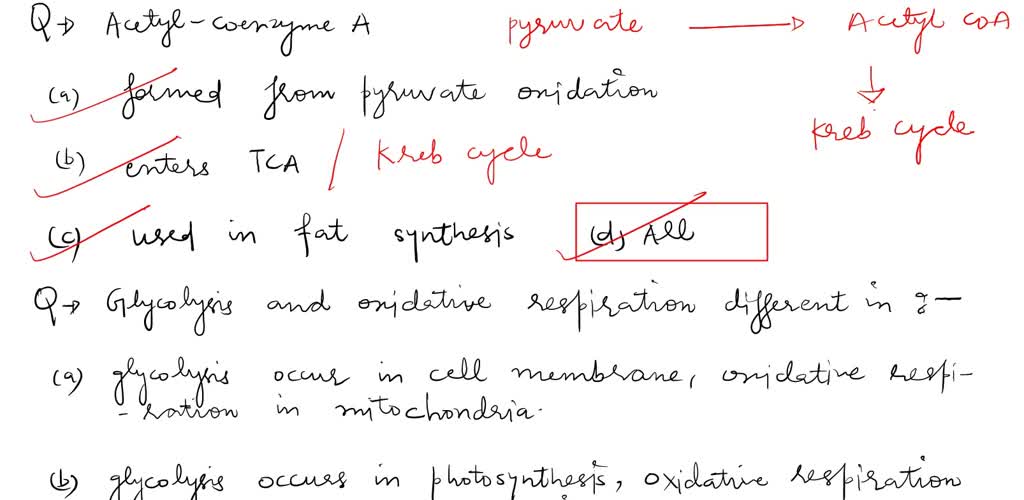 Q→ Acetyl-coenzyme A pyruvate → Acetyl COA
(a) formed from pyruvate onidation
↓
Kreb cycle
(b) enters TCA / Kreb cycle
(c) used in fat synthesis (d) All
Q→ Glycolysis and oxidative respiration different in :-
(a) glycolysis occur in cell membrane, oxidative respi-
-ration in mitochondria.
(b) glycolysis occurs in photosynthesis, oxidative respiration